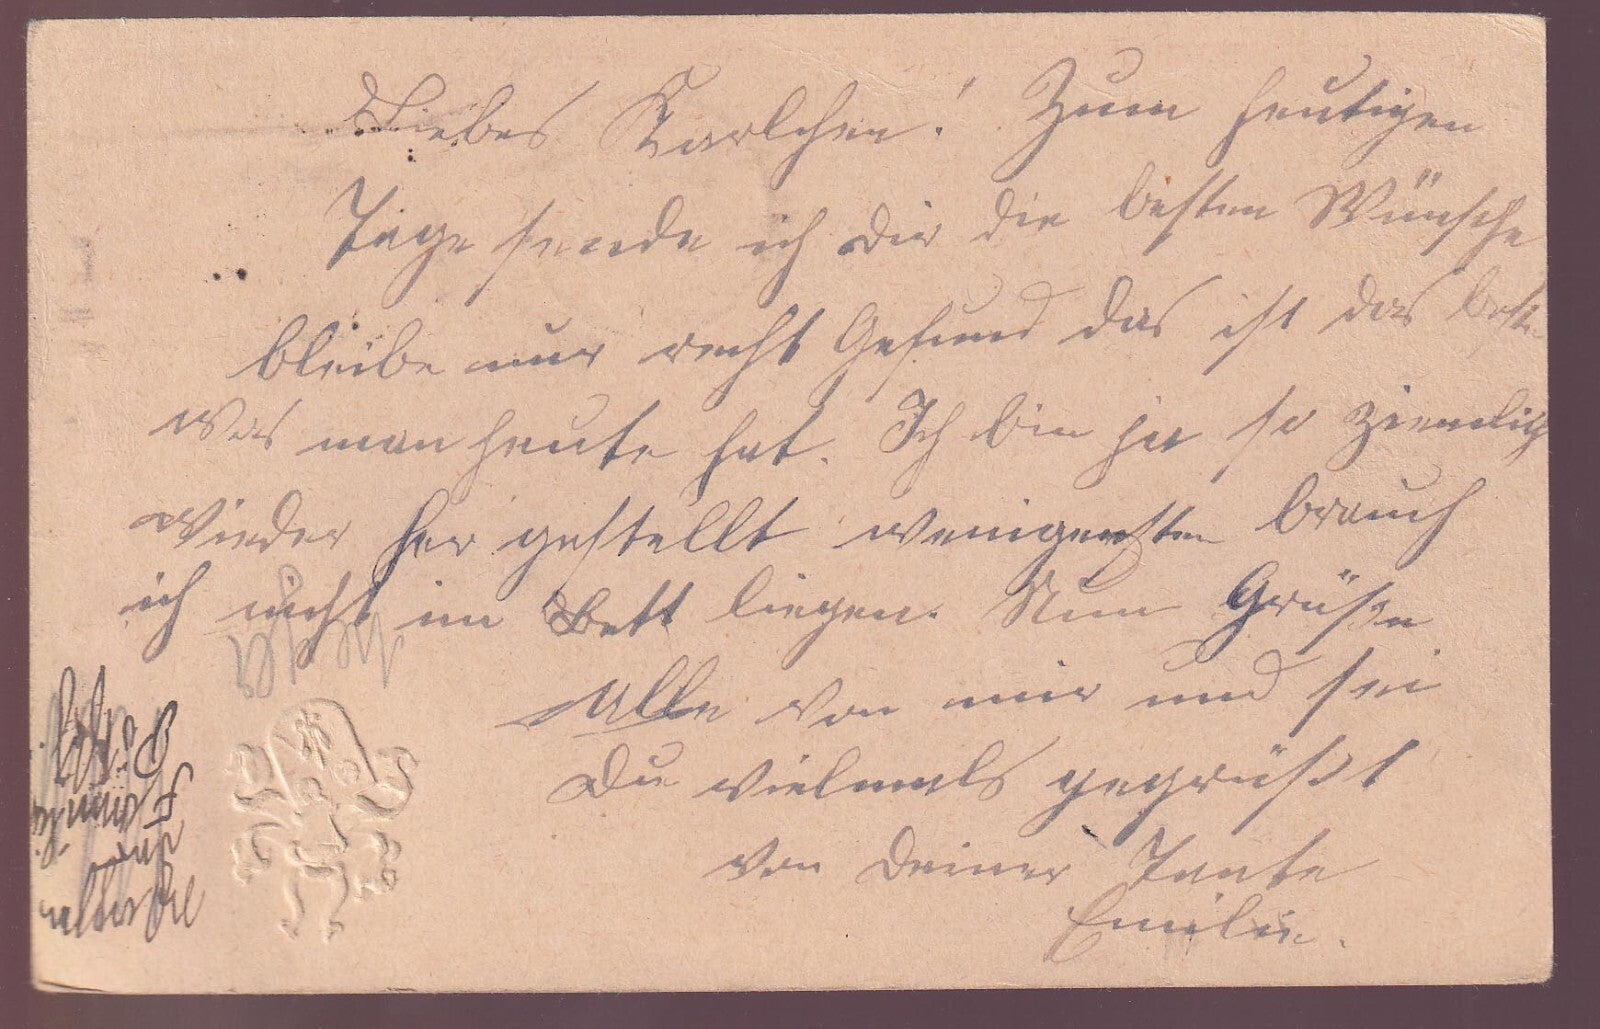 Liebes Karlchen! Zum heutigen
Tage sende ich Dir die besten Wünsche
bleibe nur recht Gesund das ist das beste
was man heute hat. Ich bin ja so ziemlich
wieder her gestellt wenigensten brauch
ich nicht im Bett liegen. Nun Grüße
Alle von mir und sei
Du vielmals gegrüßt
von Deiner Tante
Emilie.